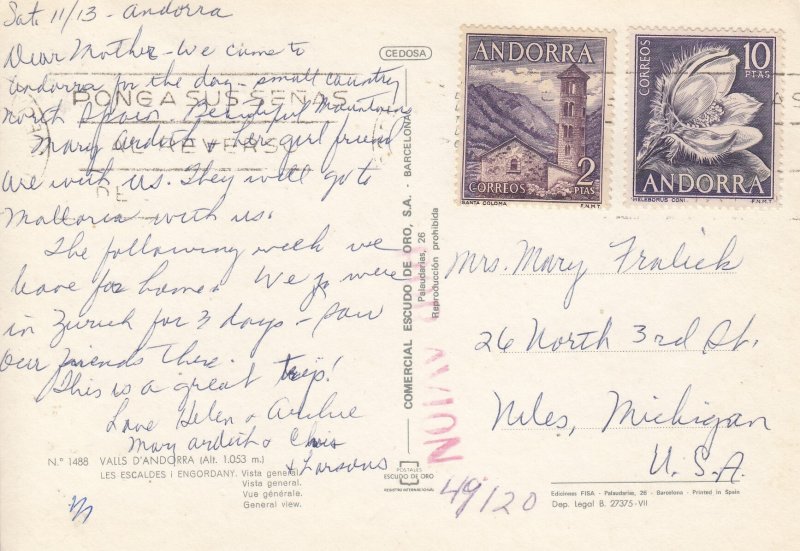 Sat. 11/13 - Andorra
Dear Mother - We came to
Andorra for the day - small country
North Spain. Beautiful Mountains
Mary Ardith + her girl friend
are with us. They will go to
Mallorca with us.
The following week we
leave for home. We were
in Zurich for 3 days - saw
our friends there.
This is a great trip!
Love Helen + Archie
Mary Ardith + Chris
+ Larsons
PONGA SUS SEÑAS
REVERSO
DE
N.º 1488 VALLS D'ANDORRA (Alt. 1.053 m.)
LES ESCALDES i ENGORDANY. Vista general.
Vista general.
Vue générale.
General view.
CEDOSA
COMERCIAL ESCUDO DE ORO, S.A. - BARCELONA
Palaudarias, 26
Reproducción prohibida
POSTALES
ESCUDO DE ORO
REGISTRO INTERNACIONAL
ANDORRA
CORREOS
2
PTAS
SANTA COLOMA
F.N.M.T.
CORREOS
10
PTAS
ANDORRA
HELEBORUS CONI
F.N.M.T.
AVION
Mrs. Mary Fralick
26 North 3rd St.
Niles, Michigan
U.S.A.
49/20
Ediciones FISA - Palaudarias, 26 - Barcelona - Printed in Spain
Dep. Legal B. 27375-VII